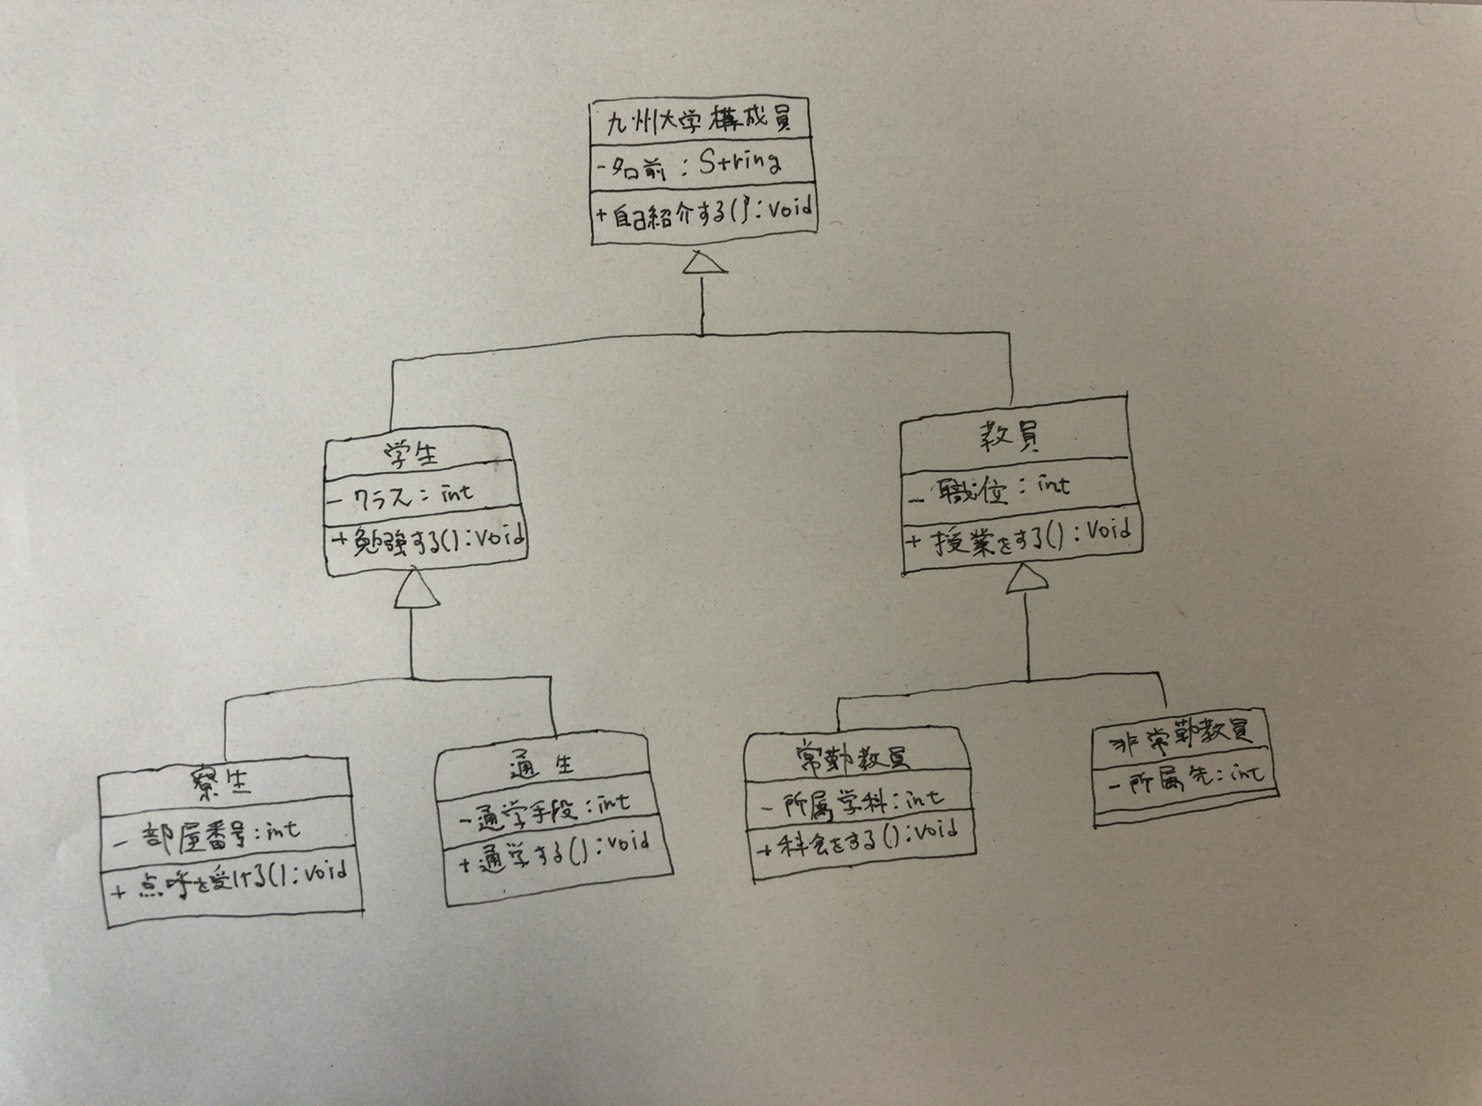 九州大学構成員
-名前:String
+自己紹介する():void
学生
-クラス:int
+勉強する():void
教員
-職位:int
+授業をする():void
寮生
-部屋番号:int
+点呼を受ける():void
通生
-通学手段:int
+通学する():void
常勤教員
-所属学科:int
+科会をする():void
非常勤教員
-所属先:int